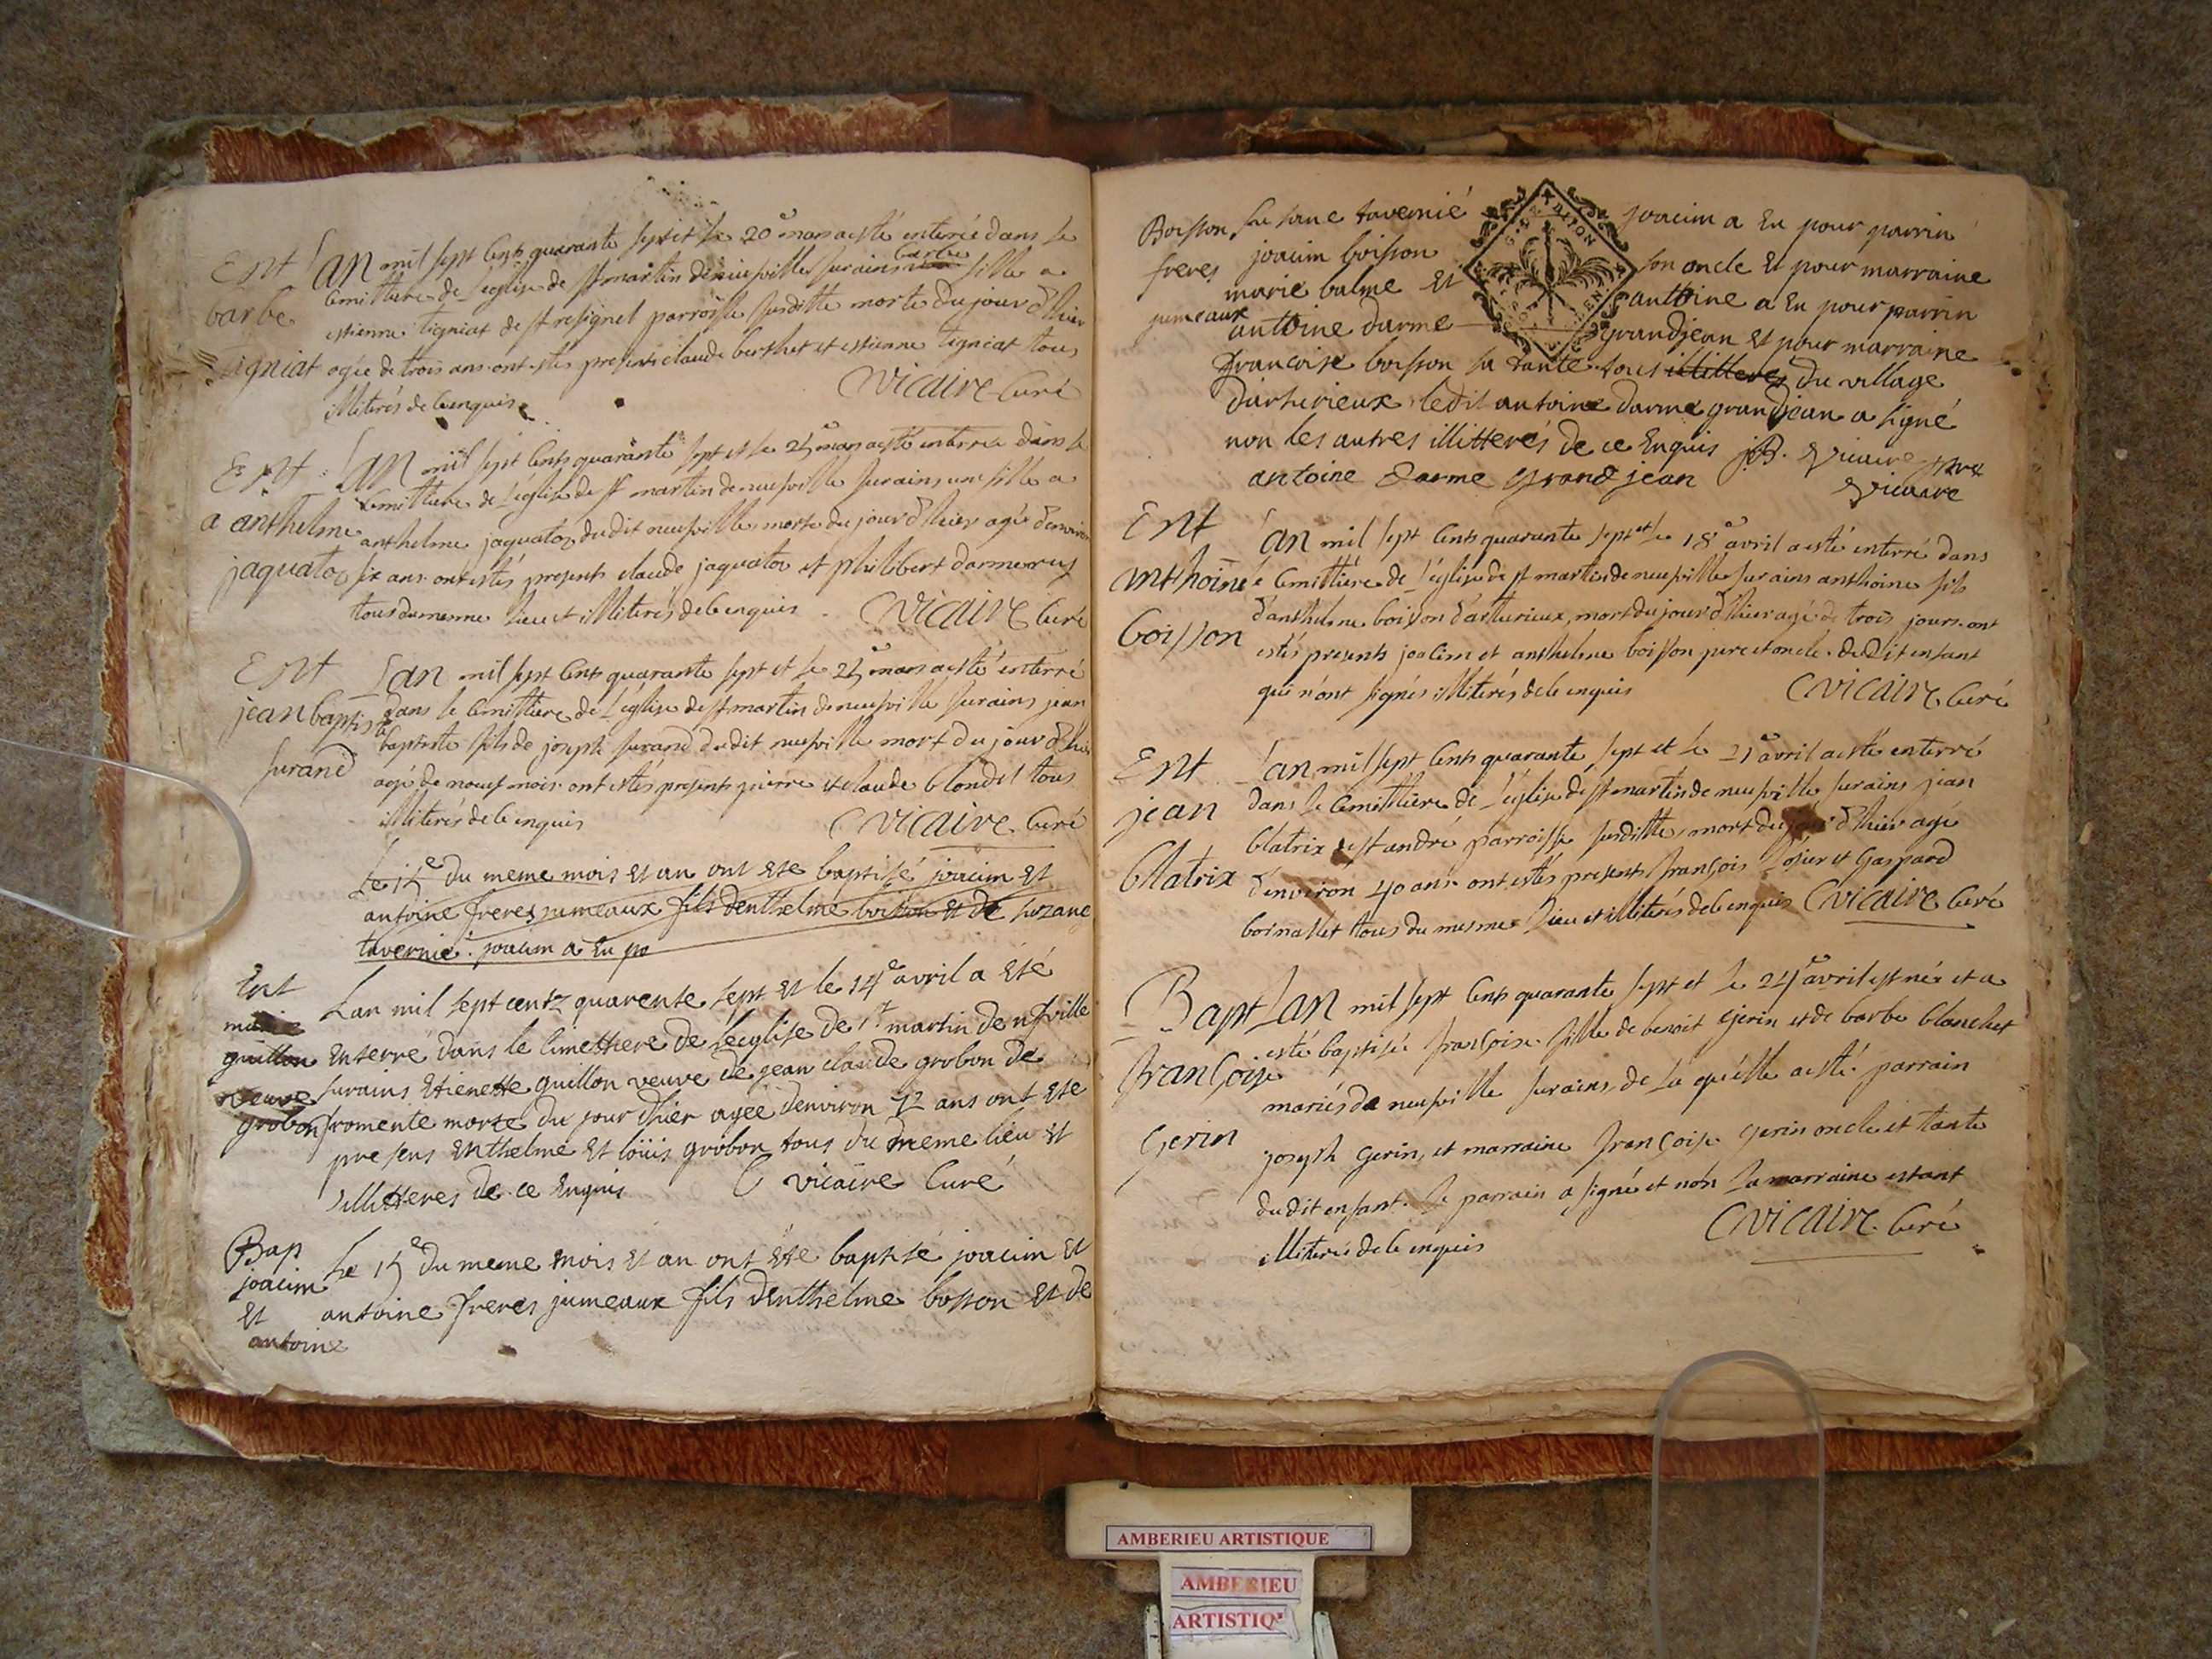 Ent
barbe
tigniat
Lan mil sept cents quarante sept et le 20e mars a esté enterrée dans le
cemittiere de l'eglise de st martin de neufville surains barbe fille a
estienne tigniat de st resignel parroisse susditte morte du jour d'hier
agée de trois ans ont estés presents claude berthet et estienne tigniat tous
illiterés de ce enquis
C vicaire Curé
Ent
a anthelme
jaquatot
Lan mil sept cents quarante sept et le 25e mars a esté enterrée dans le
cemittiere de l'eglise de st martin de neufville surains une fille a
anthelme jaquatot du dit neufville morte du jour d'hier agée d'environ
six ans ont estés presents claude jaquatot et philibert darmerey
tous du mesme lieu et illiterés de ce enquis
C vicaire Curé
Ent
jean baptiste
jurand
Lan mil sept cents quarante sept et le 25e mars a esté enterré
dans le cemittiere de l'eglise de st martin de neufville surains jean
baptiste fils de joseph jurand du dit neufville mort du jour d'hier
agé de neuf mois ont estés presents pierre et claude blondel tous
illiterés de ce enquis
C vicaire Curé
Le 15e du meme mois et an ont ete baptisé joacim et
antoine freres jumeaux fils denthelme boisson et de suzane
tavernié. joacim a Eu po
Ent
marie
guillon
veuve
grobon
Lan mil sept centz quarente sept et le 14e avril a eté
enterré dans le cimettiere de l'eglise de st martin de nefville
surains etienette guillon veuve de jean claude grobon de
fromente morte du jour d'hier agée denviron 72 ans ont ete
presens enthelme et loüis grobon tous du meme lieu et
illitteres de ce enquis
C vicaire Curé
Bap
joacim
et
antoine
Le 15e du meme mois et an ont éte baptisé joacim et
antoine freres jumeaux fils denthelme boisson et de
Boisson
freres
jumeaux
susane tavernié joacim a eu pour parrin
joacim boisson son oncle et pour marraine
marie balme et antoine a eu pour parrin
antoine darme grandjean et pour marraine
francoise boisson sa tante tous illitteres du village
d'arturieux ledit antoine darme grandjean a signé
non les autres illitterés de ce enquis j B. vicaire ptre
antoine darme grand jean vicaire
Ent
anthoine
boisson
Lan mil sept cents quarante sept et le 18e avril a esté enterré dans
le cemittiere de l'eglise de st martin de neufville surains anthoine fils
d'anthelme boisson d'arturieux, mort du jour d'hier agé de trois jours. ont
estés presents joacim et anthelme boisson pere et oncle du dit enfant
qui n'ont signés illiterés de ce enquis
C vicaire Curé
Ent
jean
blatrix
Lan mil sept cents quarante sept et le 21e avril a esté enterré
dans le cemittiere de l'eglise de st martin de neufville surains jean
blatrix de st andré parroisse susditte, mort du jour d'hier agé
d'environ 40 ans ont estés presents françois et gaspard
boinallet tous du mesme lieu et illiterés de ce enquis C vicaire Curé
Bapt
françoise
gerin
Lan mil sept cents quarante sept et le 24e avril est née et a
esté baptisée françoise fille de benoit gerin et de barbe blanchet
mariés de neufville surains, de la quelle a esté parrain
joseph gerin, et marraine françoise gerin oncle et tante
du dit enfant. le parrain a signé et non la marraine estant
illiterée de ce enquis
C vicaire Curé
AMBERIEU ARTISTIQUE
AMBERIEU
ARTISTIQ